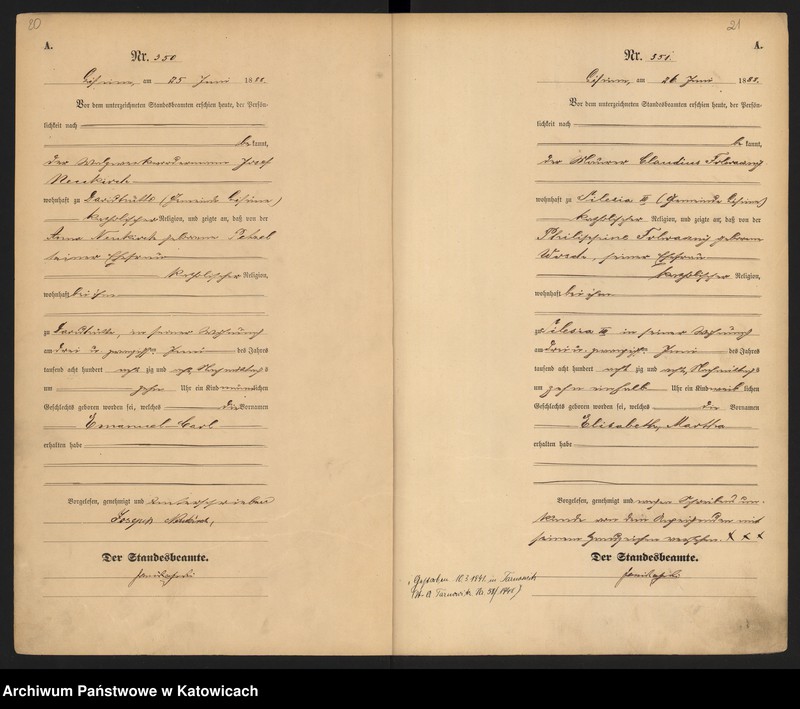 20
A.
Nr. 350
Lipine, am 25 Juni 1888.
Vor dem unterzeichneten Standesbeamten erschien heute, der Persön-
lichkeit nach
bekannt,
der Josef
Neukirch
wohnhaft zu Davidhütte (Gemeinde Lipine)
katholischer Religion, und zeigte an, daß von der
Anna Neukirch geborene
seiner Ehefrau
katholischer Religion,
wohnhaft bei ihm
zu Davidhütte, in seiner Wohnung
am drei u. zwanzigsten Juni des Jahres
tausend acht hundert acht zig und acht, Nachmittags
um zehn Uhr ein Kind männlichen
Geschlechts geboren worden sei, welches die Vornamen
Emanuel Carl
erhalten habe
Vorgelesen, genehmigt und unterschrieben
Joseph Neukirch,
Der Standesbeamte.
21
A.
Nr. 351.
Lipine, am 26 Juni 1888.
Vor dem unterzeichneten Standesbeamten erschien heute, der Persön-
lichkeit nach
bekannt,
der Maurer Claudius
wohnhaft zu Silesia III (Gemeinde Lipine)
katholischer Religion, und zeigte an, daß von der
Philippine geborene
seiner Ehefrau
katholischer Religion,
wohnhaft bei ihm
zu Silesia III in seiner Wohnung
am drei u. zwanzigsten Juni des Jahres
tausend acht hundert acht zig und acht, Nachmittags
um zehn einhalb Uhr ein Kind weiblichen
Geschlechts geboren worden sei, welches die Vornamen
Elisabeth, Martha
erhalten habe
Vorgelesen, genehmigt und wegen Schreibens un-
kunde von dem Anzeigenden mit
seinem Handzeichen versehen. X X X
Der Standesbeamte.
Gestorben 10.3.1941 in Tarnowitz
(St. A. Tarnowitz Nr. 58/1941)
Archiwum Państwowe w Katowicach